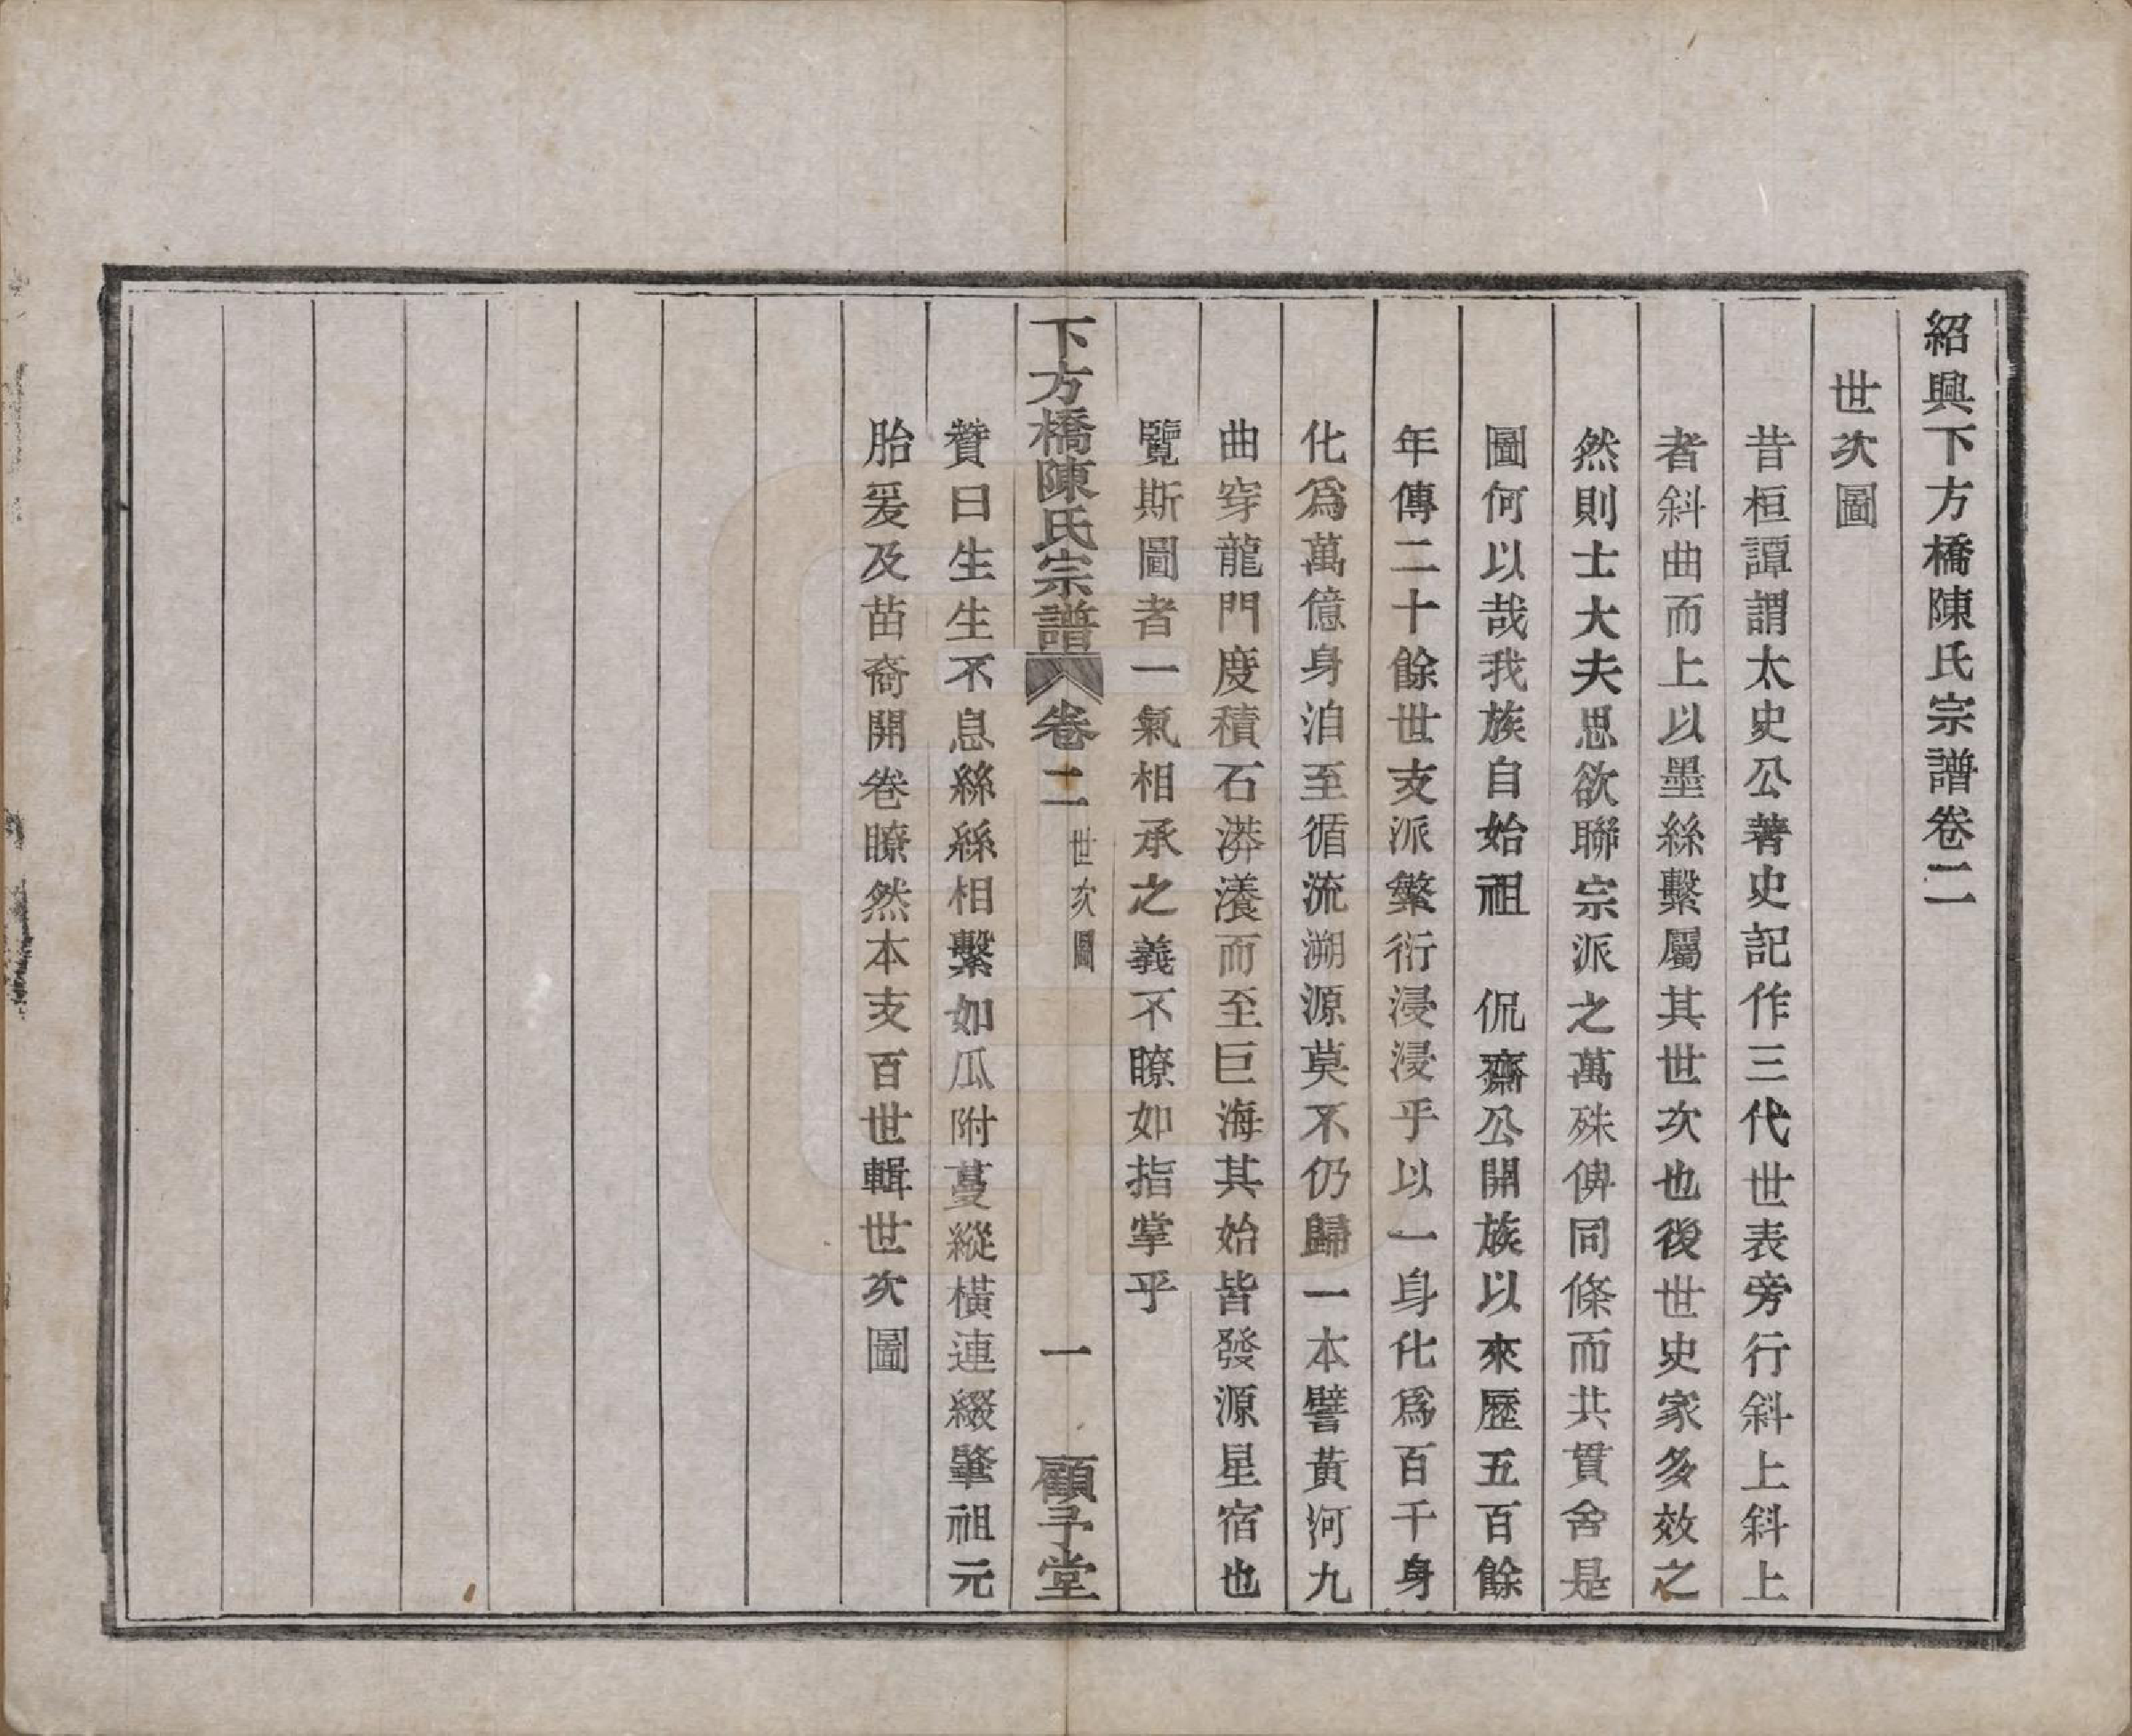 紹興下方橋陳氏宗譜卷二
世次圖
昔桓譚謂太史公著史記作三代世表旁行斜上斜上
者斜曲而上以墨絲繫屬其世次也後世史家多效之
然則士大夫思欲聯宗派之萬殊俾同條而共貫舍是
圖何以哉我族自始祖　侃齋公開族以來歷五百餘
年傳二十餘世支派繁衍浸浸乎以一身化爲百千身
化爲萬億身洎至循流溯源莫不仍歸一本譬黃河九
曲穿龍門度積石漭瀁而至巨海其始皆發源星宿也
覽斯圖者一氣相承之義不瞭如指掌乎
下方橋陳氏宗譜　卷二　世次圖　一　顧予堂
贊曰生生不息絲絲相繫如瓜附蔓縱橫連綴肇祖元
胎爰及苗裔開卷瞭然本支百世輯世次圖